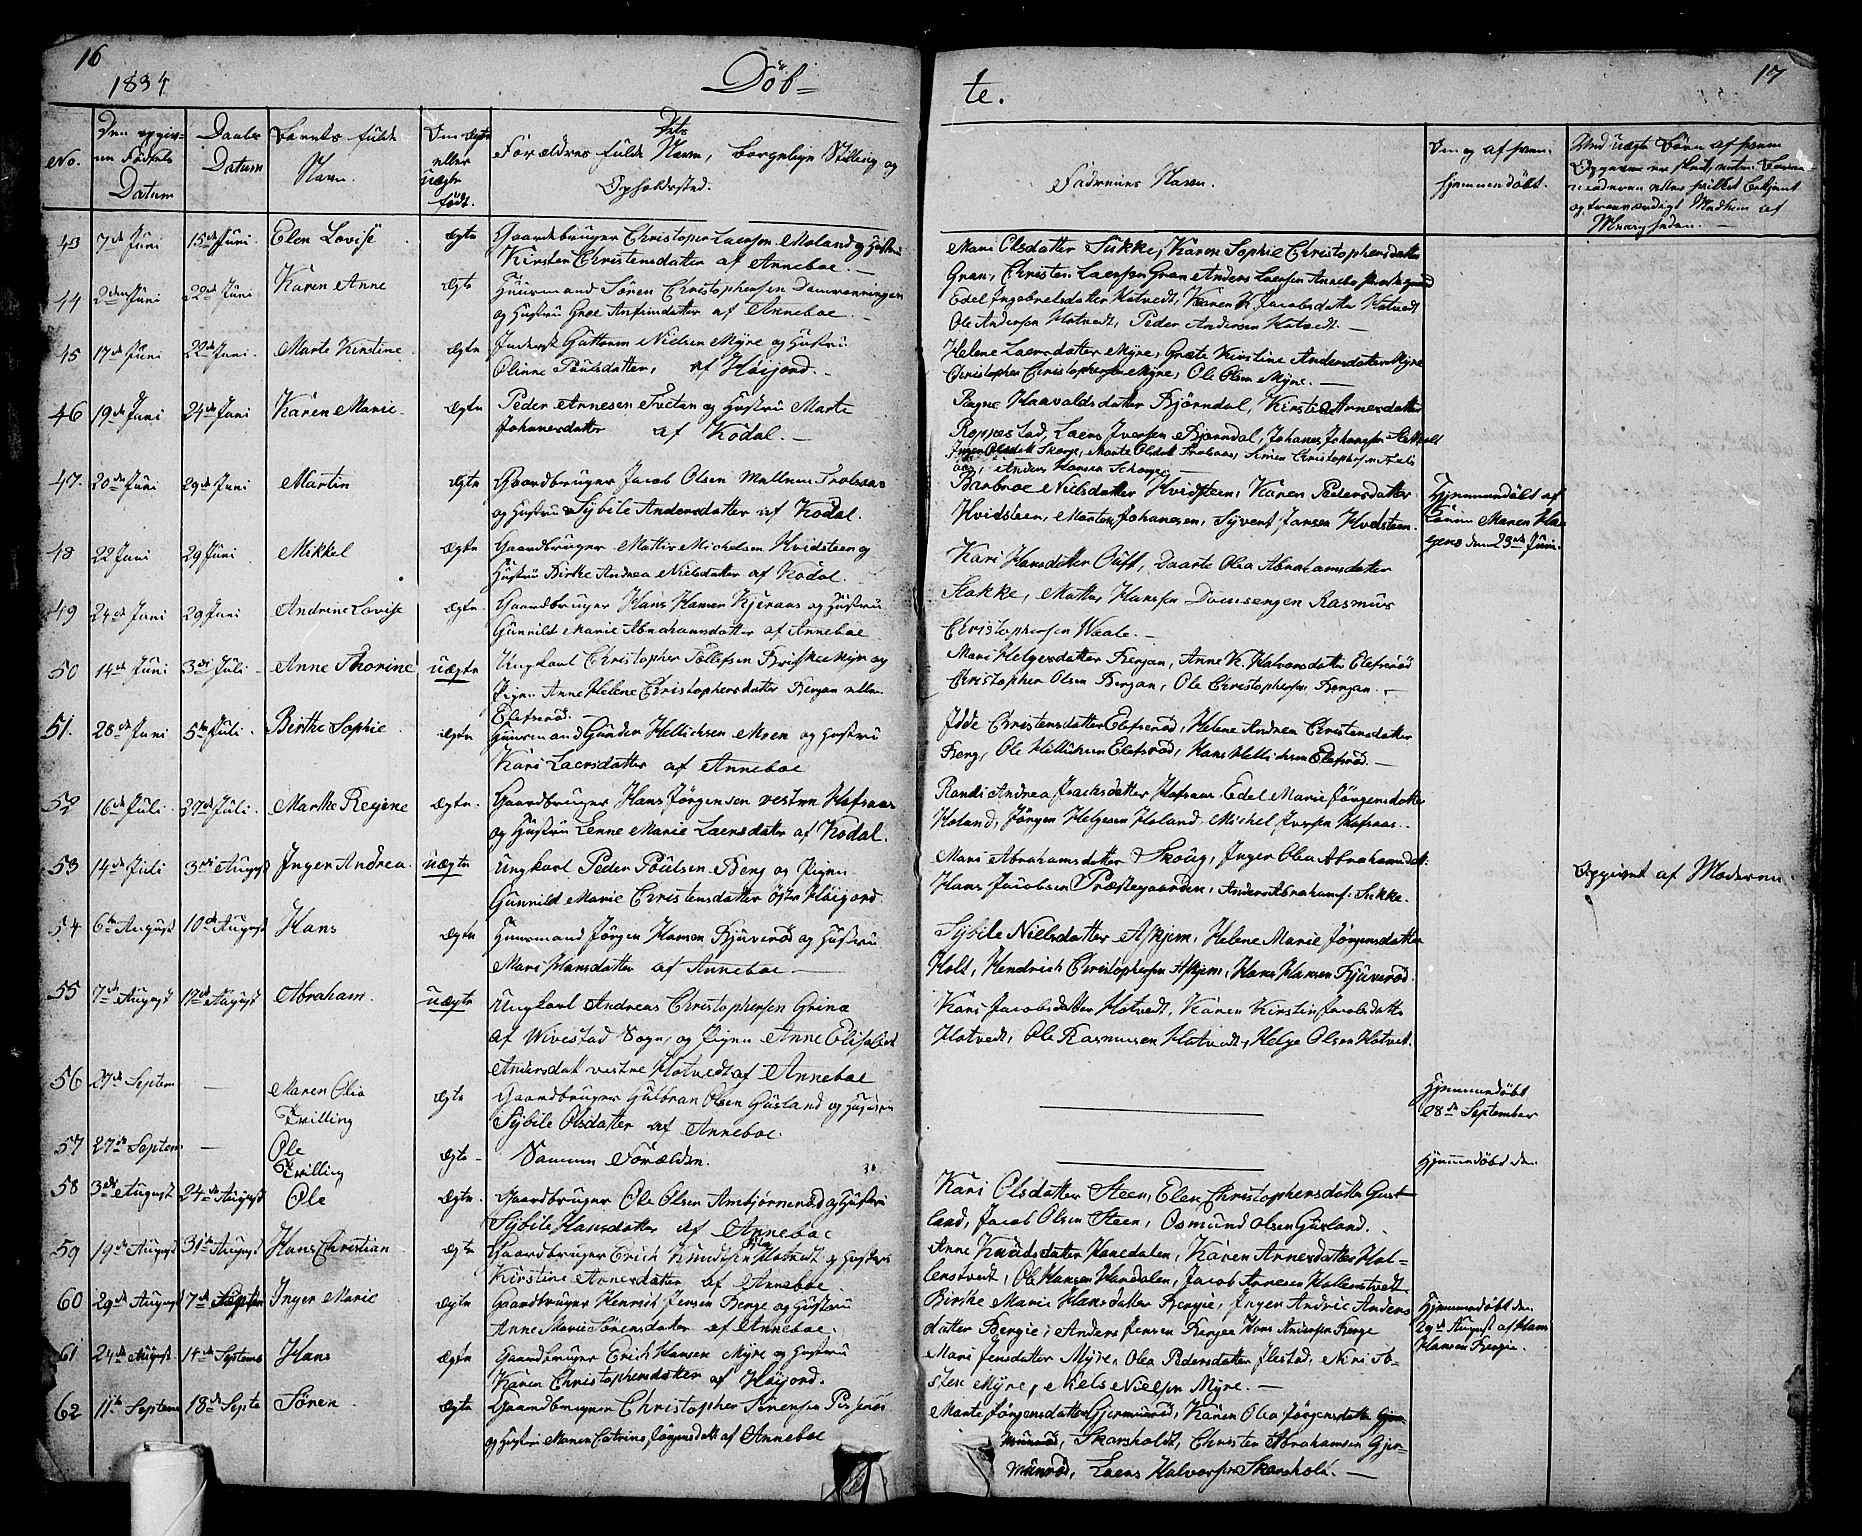 16
1834
Döb=
te.
17
No.
Den opgiv=
ne Födsels
Datum
Daabs
Datum
Barnets fulde
Navn.
Om Ægte
eller
Uægte
födt.
Dets
Forældres fulde Navn, borgerlige Stilling og
Opholdssted.
Faddernes Navn.
Om og af hvem
hjemmedöbt.
43 7de Juni 15de Juni Elen Lovise Ægte Gaardbruger Christopher Laersen Moland og Hustru
Kirsten Christensdatter af Anneboe.
Mari Olsdatter Sukke, Karen Sophie Christophersdatter
Gran, Christen Laersen Gran Anders Laersen Anneboe
44 2den Juni 22de Juni Karen Anne Ægte Huusmand Sören Christophersen
og Hustru Groe af Anneboe.
Edel Ingebretsdatter Hotvedt, Karen K. Jacobsdatter Hotvedt
Ole Andersen Hotvedt, Peder Andersen Hotvedt.
45 17de Juni 22de Juni Marte Kirstine Ægte Guttorm Nielsen Myre og Hustru
Olinne Poulsdatter, af Höijord.
Helene Laersdatter Myre, Grete Kirstine Andersdatter Myre
Christopher Christophersen Myre, Ole Olsen Myre.
46 19de Juni 24de Juni Karen Marie Ægte Peder Annesen Tvetan og Hustru Marte
Johannesdatter af Kodal.
Ragne Haavaldsdatter Björndal, Kirsti Annesdatter
Roppestad, Laers Iversen Björndal, Johanes Johanesen
47. 20de Juni 29de Juni Martin Ægte Gaardbruger Jacob Olsen Mellem Trolsaas
og Hustru Sybile Andersdatter af Kodal.
Anders Hansen
48 22 Juni 29 Juni Mikkel Ægte Gaardbruger Mattis Michelsen Hvidsteen og
Hustru Birte Andrea Nielsdatter af Kodal.
Barbroe Nielsdatter Hvidsteen, Karen Pedersdatter
Hvidsteen, Morten Johanesen, Syvert Jansen Hvidsteen.
Hjemmedöbt af
Maren Ha=
gens den 23de Juni
49 24de Juni 29 Juni Andrine Lovise Ægte. Gaardbruger Hans Hansen Kjeraas og Hustru
Gunnild Marie Abrahamsdatter af Anneboe
Kari Hansdatter Duft, Daarte Olea Abrahamsdatter
Stokke, Mattis Hanssen Domsengen Rasmus
Christophersen Waale.
50 14de Juni 3die Juli Anne Thorine Uægte Ungkarl Christopher Tollefsen og
Pigen Anne Helene Christophersdatter Bergan eller
Elefseröd.
Mari Helgesdatter Bergan, Anne K. Halvorsdatter Elefseröd
Christopher Olsen Bergan, Ole Christophersen Bergan.
51. 28de Juni 5te Juli. Birthe Sophie Ægte Huusmand Gunder Hellichsen Moen og Hustru
Kari Laersdatter af Anneboe
Idde Christensdatter Elefseröd, Helene Andrea Christensdatter
Berg, Ole Hellichsen Elefseröd, Hans Hellichsen Elefseröd.
52 16de Juli 27de Juli. Marthe Regine Ægte. Gaardbruger Hans Jörgensen vestre Hofsaas
og Hustru Lenne Marie Laersdatter af Kodal.
Randi Andrea Isachsdatter Hofsaas Edel Marie Jörgensdatter
Holand, Jörgen Helgesen Holand, Michel Iversen Hofsaas.
53 14de Juli 3die August Inger Andrea. Uægte Ungkarl Peder Poulsen Berg og Pigen
Gunnild Marie Christensdatter östre Höijord.
Mari Abrahamsdatter Skoug, Inger Olea Abrahamsdat:
Hans Jacobsen Præstegaarden, Anders Abrahams: Sukke.
Opgivet af Moderen.
54 6te August 10de August Hans Ægte Huusmand Jörgen Hansen Kjuveröd og Hustru
Mari Hansdatter af Anneboe.
Sybile Nielsdatter Askjem, Helene Marie Jörgensdatter
Holt, Hendrich Christophersen Askjem, Hans Hansen Kjuveröd.
55 7de August 17de August Abraham. Uægte Ungkarl Andreas Christophersen Grinæ
af Wivestad Sogn, og Pigen Anne Elisabet
Andersdat vestre Hotvedt af Anneboe
Kari Jacobsdatter Hotvedt, Karen Kirstin Jacobsdatte
Hotvedt, Ole Rasmussen Hotvedt, Helge Olsen Hotvet.
56 27de Septem — Maren Olia
Tvilling
Ægte Gaardbruger Gulbran Olsen Gusland og Hustru
Sybile Olsdatter af Anneboe.
Hjemmedöbt
28de September
57 27de Septem — Ole
Tvilling
Ægte Samme Forældre.
Hjemmedöbt den
58 3die August 24de August Ole Ægte. Gaardbruger Ole Olsen Ambjörneröd og Hustru
Sybile Hansdatter af Anneboe
Kari Olsdatter Steen, Elen Christophersdatter Gus=
land, Jacob Olsen Steen, Osmund Olsen Gusland.
59 19de August 31te August Hans Christian Ægte Gaardbruger Erich Knudtsen Hotvedt og Hustru
Kirstine Annesdatter af Anneboe
Anne Knudsdatter Hanedalen, Karen Annesdatter Hol=
lenstvedt, Ole Hansen Hanedalen, Jacob Annesen Hollenstvedt
60 29de August 7de Septem Inger Marie Ægte Gaardbruger Henrich Jensen Berge og Hustru
Anne Marie Sörensdatter af Anneboe.
Birthe Marie Hansdatter Bergie, Inger Andrie Anders
datter Bergie, Anders Jensen Bergie Hans Andersen Berge
Hjemmedöbt den
29de August af Hans
Hansen Bergie.
61 24de August 14de Septemb Hans Ægte Gaardbruger Erich Hansen Myre og Hustru
Karen Christophersdatter af Höijord.
Mari Jensdatter Myre, Olea Pedersdatter Ilestad,
Myre, Niels Nielsen Myre.
62 11te Septem 18de Septe Sören Ægte Gaardbruger Christopher Sörensen
og Hustru Maren Catrine Jörgensdatt af Anneboe
Marte Jörgensdatter Gjermundröd, Karen Olea Jörgensdatter Gjer=
mundröd, Skorsholdt, Christen Abrahamsen Gjer=
mundröd, Laers Halvorsen Skorsholt.